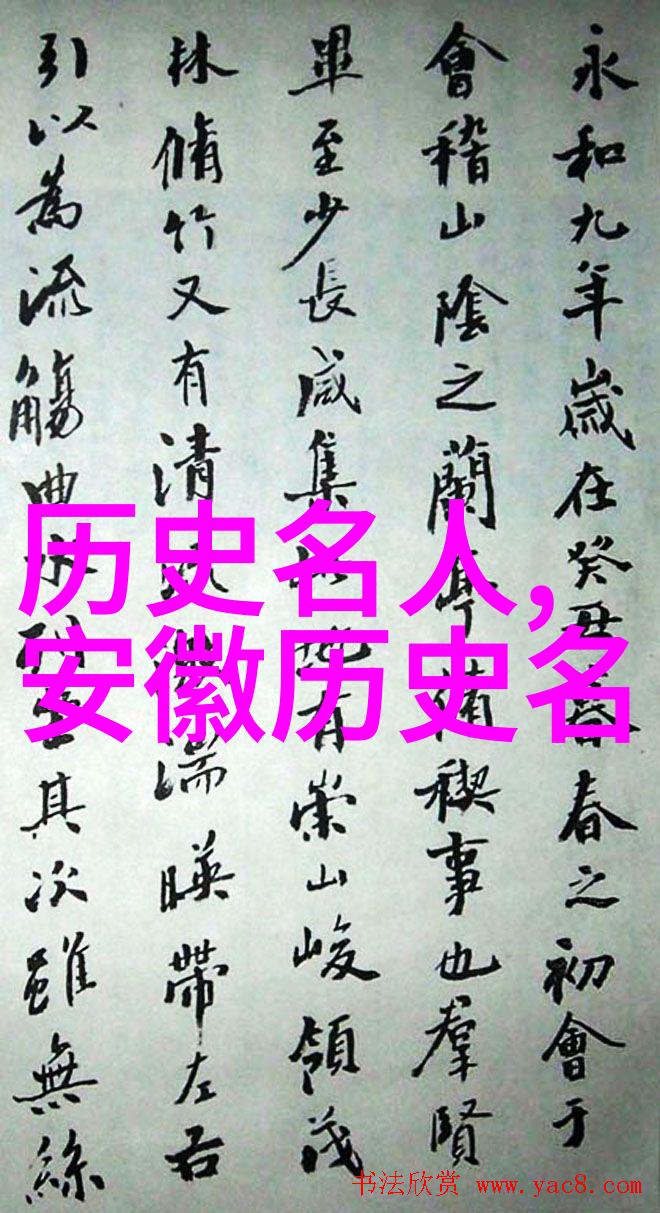 永和九年歲在癸丑暮春之初會于
會稽山陰之蘭亭脩稧事也羣賢
畢至少長咸集此地有崇山峻領茂
林脩竹又有清流激湍暎帶左右
引以為流觴曲水列坐其次雖無絲
历史名人,
安徽历史名
书法欣赏 www.yac8.com